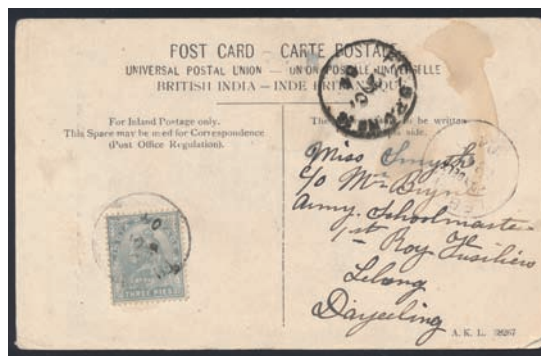 POST CARD – CARTE POSTALE
UNIVERSAL POSTAL UNION – UNION POSTALE UNIVERSELLE
BRITISH INDIA – INDE BRITANNIQUE
For Inland Postage only.
This Space may be used for Correspondence
(Post Office Regulation).
The to be written
this side.
Miss Smyth
C/o Mr Bryne
Army. Schoolmaster
1st Roy Fusiliers
Lebong
Darjeeling
THREE PIES
A. K. L.